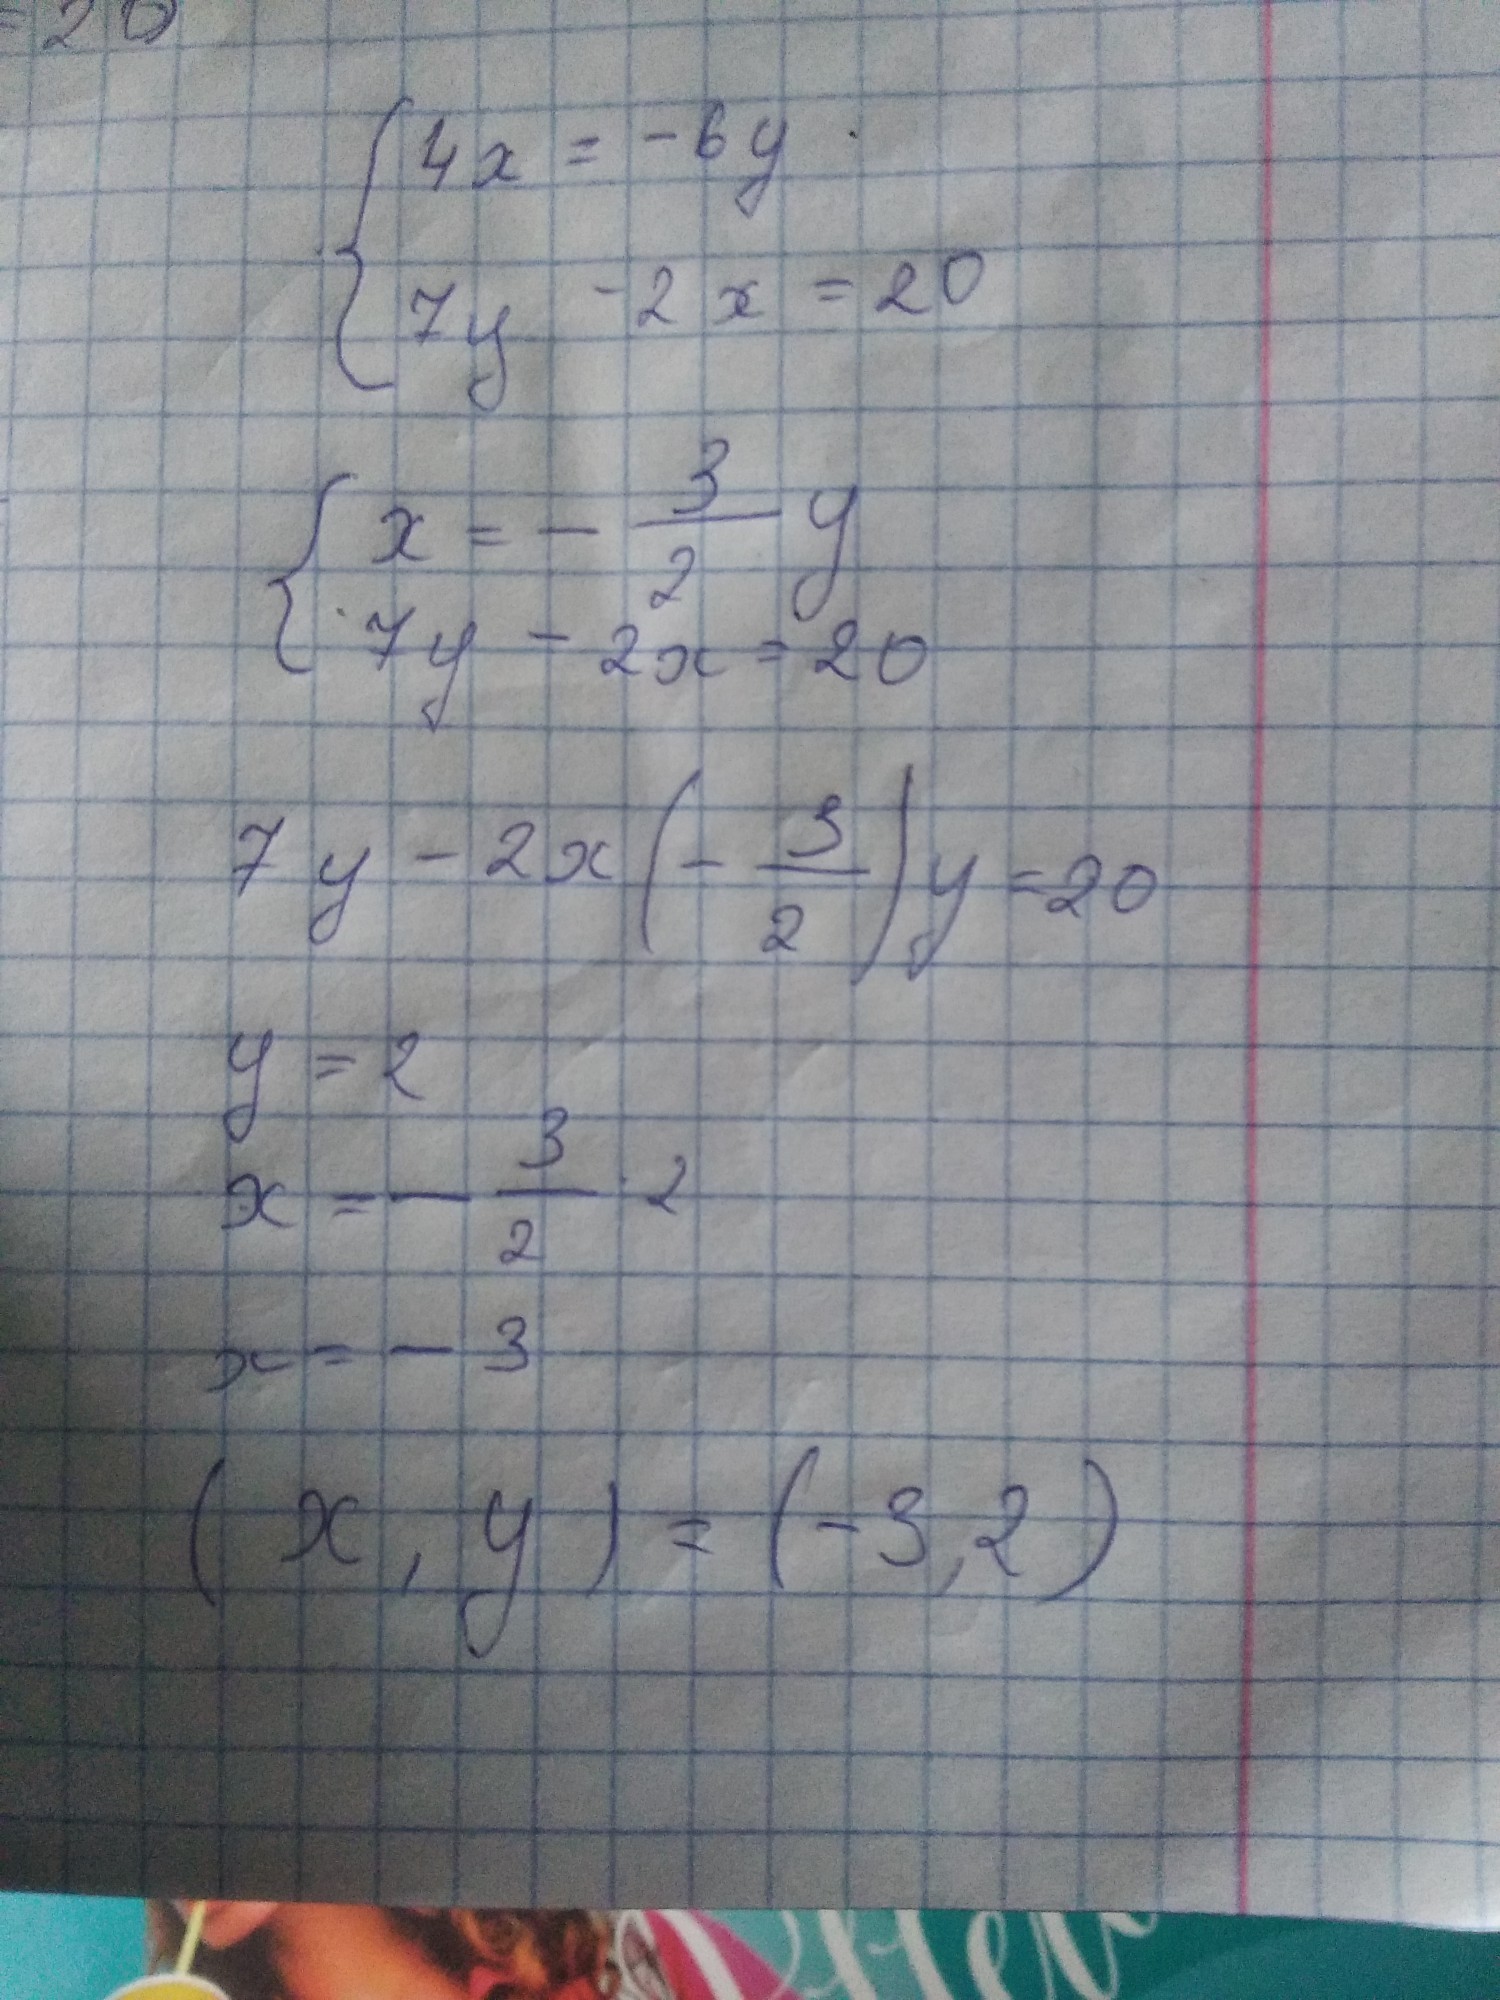 =20
4x = -6y
7y -2x = 20
x = - 3/2 y
7y - 2x = 20
7y - 2x(- 3/2)y = 20
y = 2
x = - 3/2 · 2
x = - 3
(x, y) = (-3, 2)